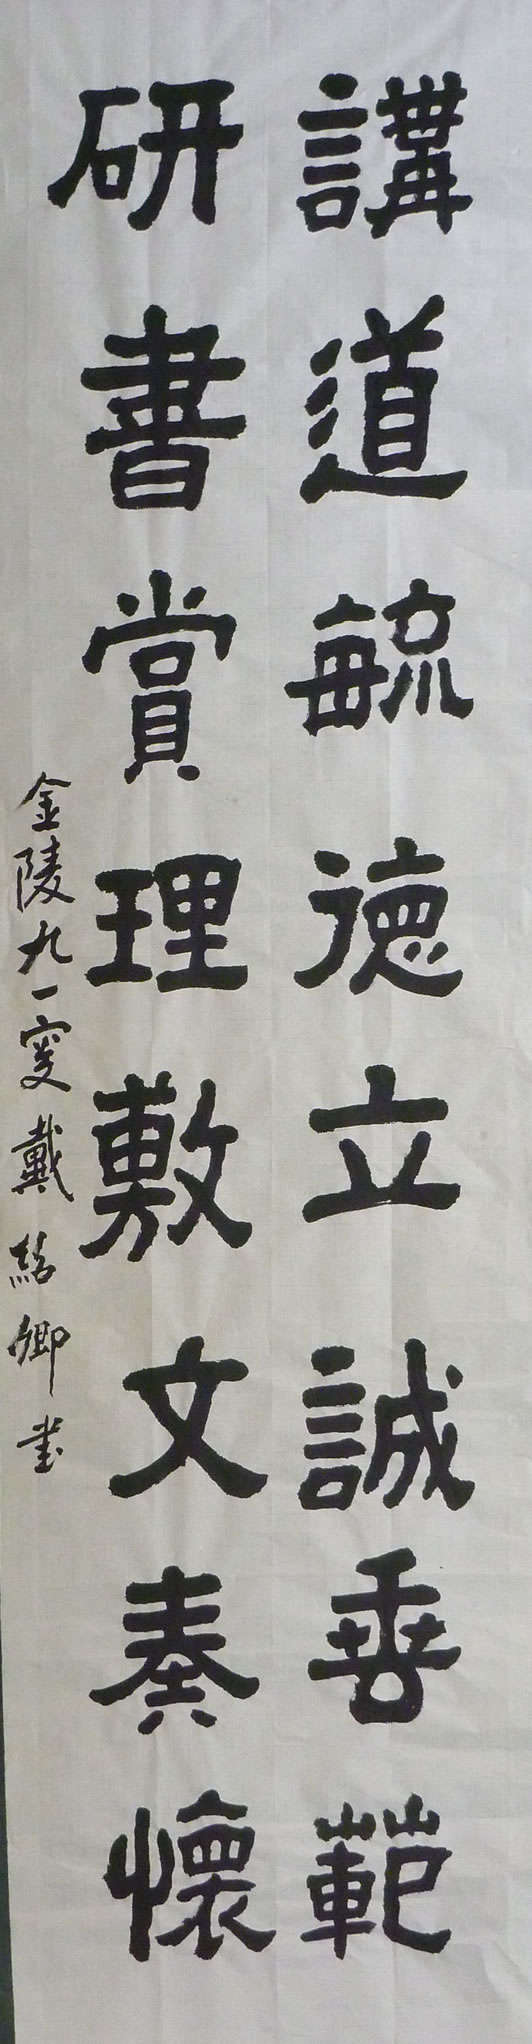 講道毓德立誠垂範
研書賞理敷文奏懷
金陵九一叟戴結卿書